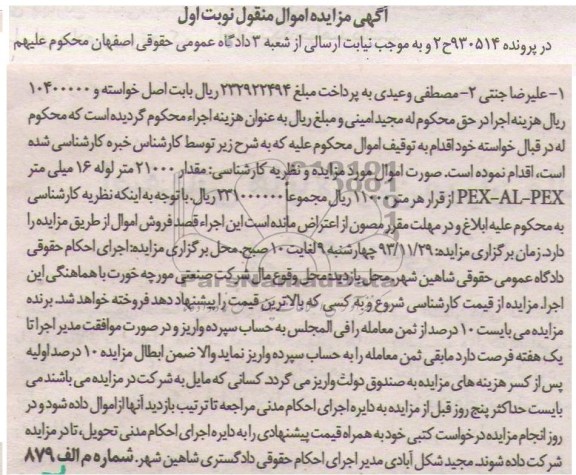 آگهی مزایده اموال منقول نوبت اول
در پرونده ۹۳۰۵۱۴ح۲ و به موجب نیابت ارسالی از شعبه ۳ دادگاه عمومی حقوقی اصفهان محکوم علیهم
۱-علیرضا جنتی ۲-مصطفی وعیدی به پرداخت مبلغ ۲۳۲۹۲۲۴۹۴ ریال بابت اصل خواسته و ۱۰۴۰۰۰۰۰
ریال هزینه اجرا در حق محکوم له مجید امینی و مبلغ ریال به عنوان هزینه اجراء محکوم گردیده است که محکوم
له در قبال خواسته خود اقدام به توقیف اموال محکوم علیه که به شرح زیر توسط کارشناس خبره کارشناسی شده
است، اقدام نموده است. صورت اموال مورد مزایده و نظریه کارشناسی: مقدار ۲۱۰۰۰ متر لوله ۱۶ میلی متر
PEX-AL-PEX از قرار هر متر ۱۱۰۰۰ ریال مجموعاً ۲۳۱۰۰۰۰۰۰ ریال. با توجه به اینکه نظریه کارشناسی
به محکوم علیه ابلاغ و در مهلت مقرر مصون از اعتراض مانده است این اجراء قصد فروش اموال از طریق مزایده را
دارد. زمان برگزاری مزایده: ۹۳/۱۱/۲۹ چهارشنبه ۹ لغایت ۱۰ صبح. محل برگزاری مزایده: اجرای احکام حقوقی
دادگاه عمومی حقوقی شاهین شهر. محل بازدید: محل وقوع مال شرکت صنعتی مورچه خورت با هماهنگی این
اجرا. مزایده از قیمت کارشناسی شروع و به کسی که بالاترین قیمت را پیشنهاد دهد فروخته خواهد شد. برنده
مزایده می بایست ۱۰ درصد از ثمن معامله را فی المجلس به حساب سپرده واریز و در صورت موافقت مدیر اجرا تا
یک هفته فرصت دارد مابقی ثمن معامله را به حساب سپرده واریز نماید والا ضمن ابطال مزایده ۱۰ درصد اولیه
پس از کسر هزینه های مزایده به صندوق دولت واریز می گردد. کسانی که مایل به شرکت در مزایده می باشند می
بایست حداکثر پنج روز قبل از مزایده به دایره اجرای احکام مدنی مراجعه تا ترتیب بازدید آنها از اموال داده شود و در
روز انجام مزایده درخواست کتبی خود به همراه قیمت پیشنهادی را به دایره اجرای احکام مدنی تحویل، تا در مزایده
شرکت داده شوند. مجید شکل آبادی مدیر اجرای احکام حقوقی دادگستری شاهین شهر. شماره م الف ۸۷۹